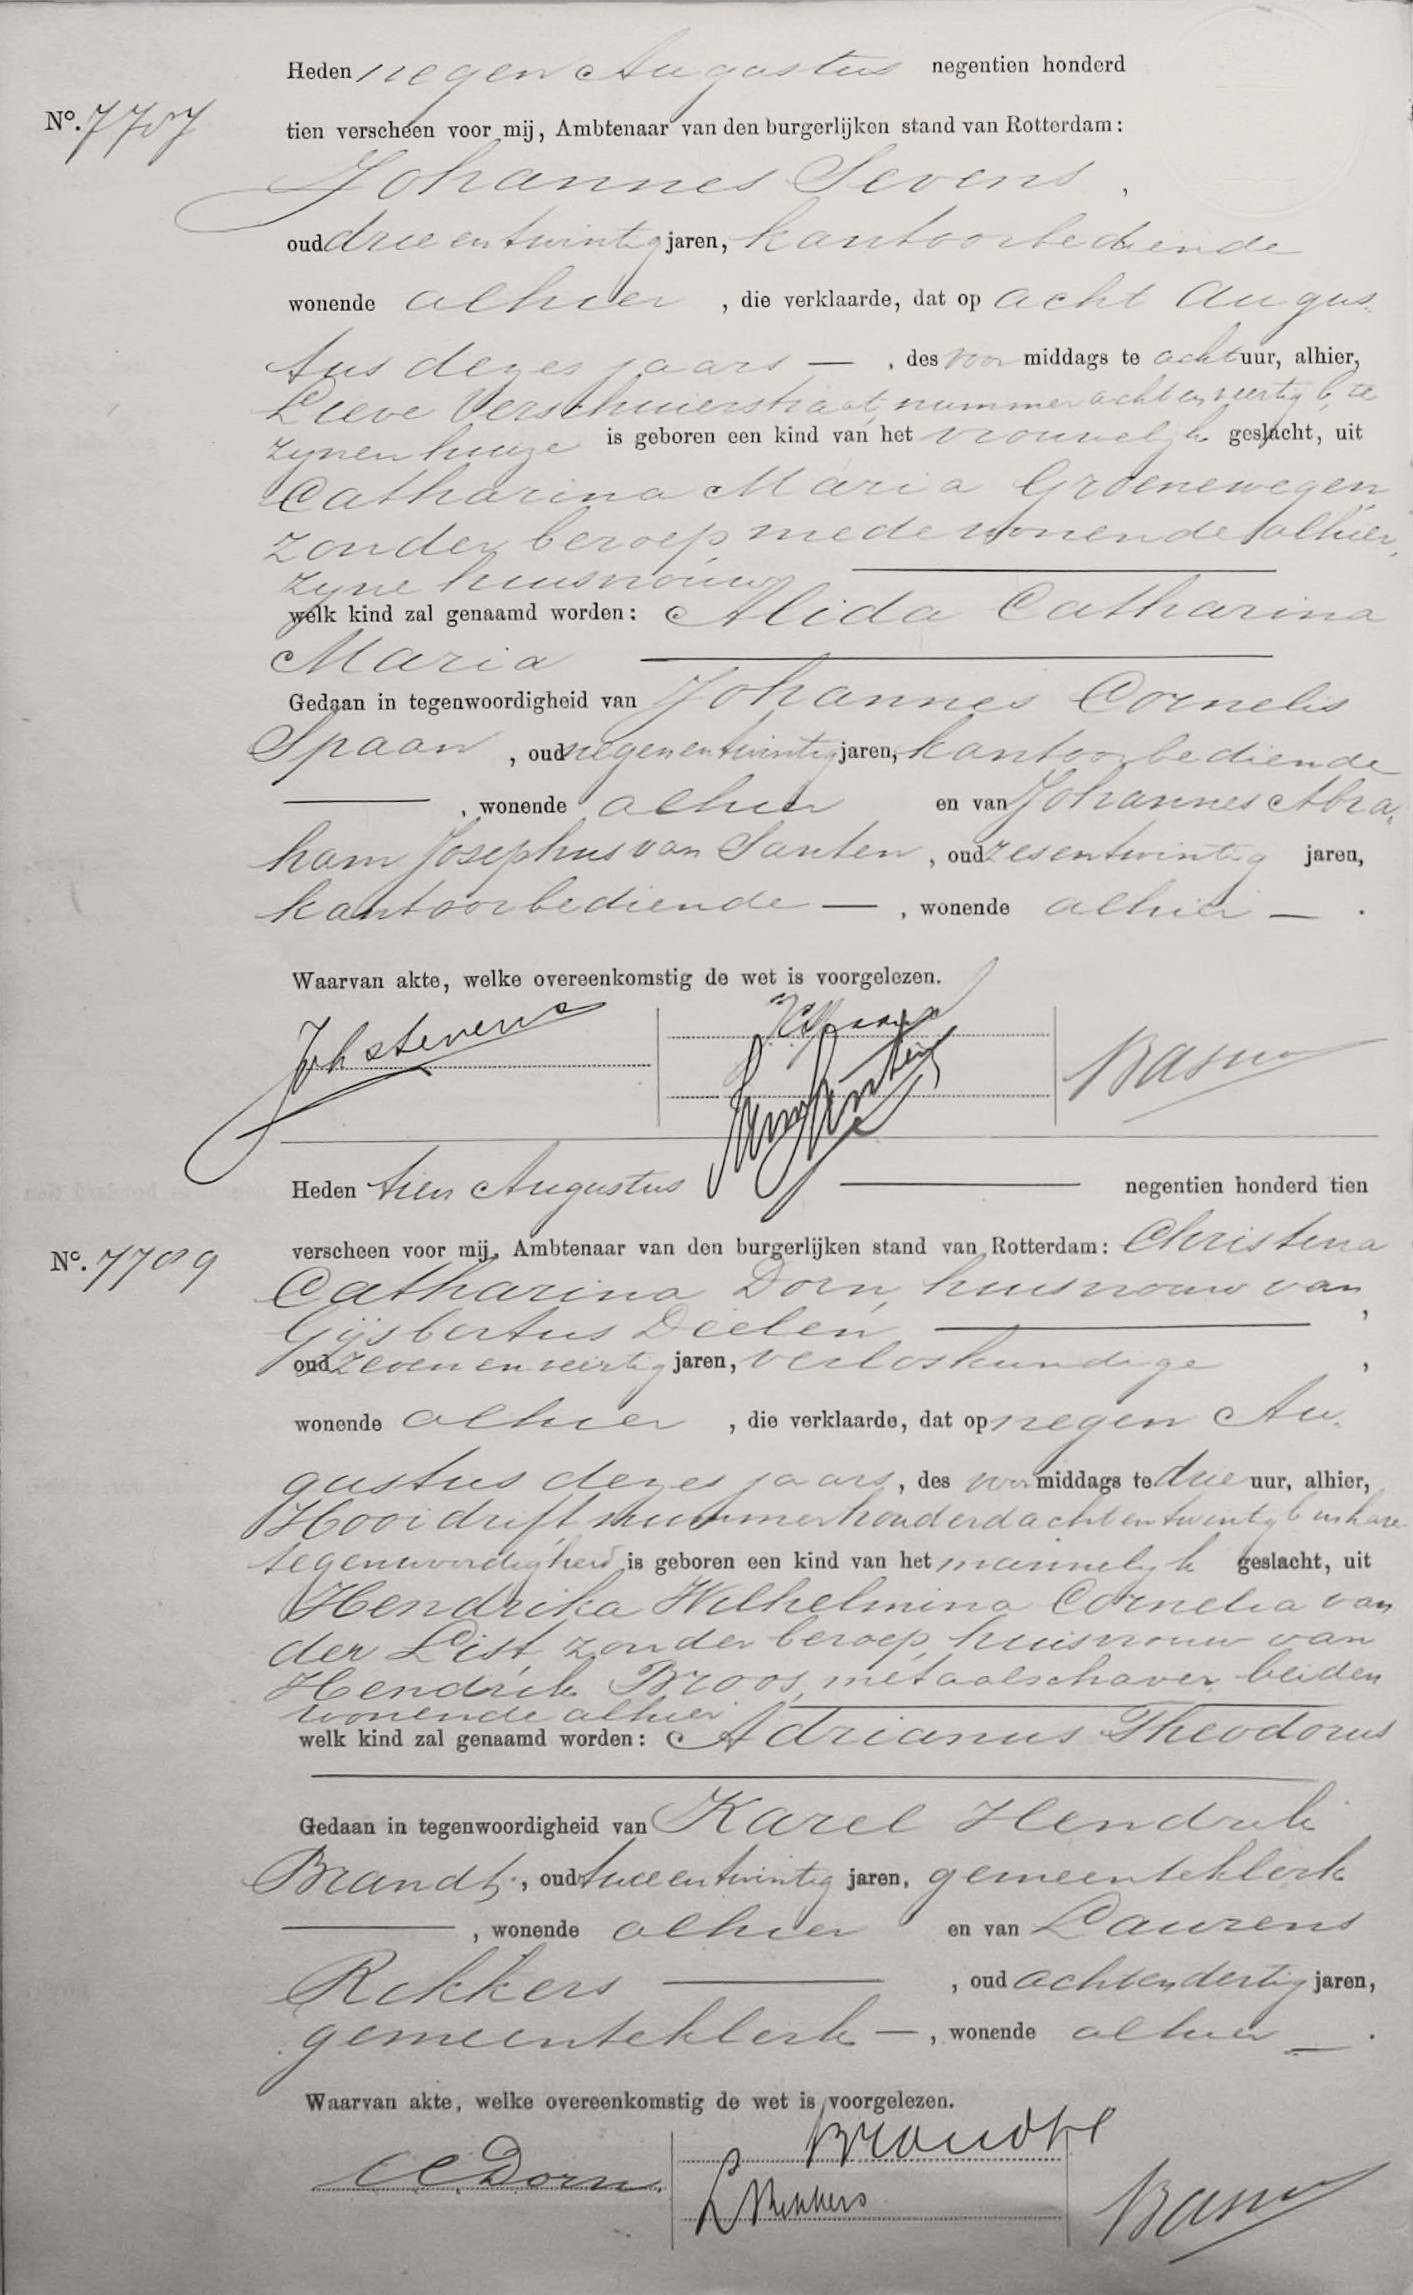 Heden negen Augustus negentien honderd
No. 7707
tien verscheen voor mij, Ambtenaar van den burgerlijken stand van Rotterdam:
Johannes Stevens,
oud drie en twintig jaren, kantoorbediende
wonende alhier, die verklaarde, dat op acht Augus-
tus dezes jaars —, des voormiddags te acht uur, alhier,
Lieve Verschuierstraat, nummer acht en veertig b, te
zynen huize is geboren een kind van het vrouwelijk geslacht, uit
Catharina Maria Groenewegen,
zonder beroep, mede wonende alhier,
zyne huisvrouw
welk kind zal genaamd worden: Alida Catharina
Maria
Gedaan in tegenwoordigheid van Johannes Cornelis
Spaan, oud negen en twintig jaren, kantoorbediende
—, wonende alhier en van Johannes Abra-
ham Josephus van Santen, oud zes en twintig jaren,
kantoorbediende —, wonende alhier —.
Waarvan akte, welke overeenkomstig de wet is voorgelezen.
Joh Stevens
JCSpaan
Heden tien Augustus — negentien honderd tien
No. 7709
verscheen voor mij, Ambtenaar van den burgerlijken stand van Rotterdam: Christina
Catharina Dorn, huisvrouw van
Gijsbertus Deelen —,
oud zeven en veertig jaren, verloskundige,
wonende alhier, die verklaarde, dat op negen Au-
gustus dezes jaars, des voormiddags te drie uur, alhier,
Hooidrift nummer honderd acht en twintig b in hare
tegenwoordigheid is geboren een kind van het mannelyk geslacht, uit
Hendrika Wilhelmina Cornelia van
der List, zonder beroep, huisvrouw van
Hendrik Broos, metaalschaver, beiden
wonende alhier
welk kind zal genaamd worden: Adrianus Theodorus
Gedaan in tegenwoordigheid van Karel Hendrik
Brandt, oud twee en twintig jaren, gemeenteklerk
—, wonende alhier en van Laurens
Rikkers —, oud acht en dertig jaren,
gemeenteklerk —, wonende alhier —.
Waarvan akte, welke overeenkomstig de wet is voorgelezen.
CCDorn
Brandt
L Rikkers